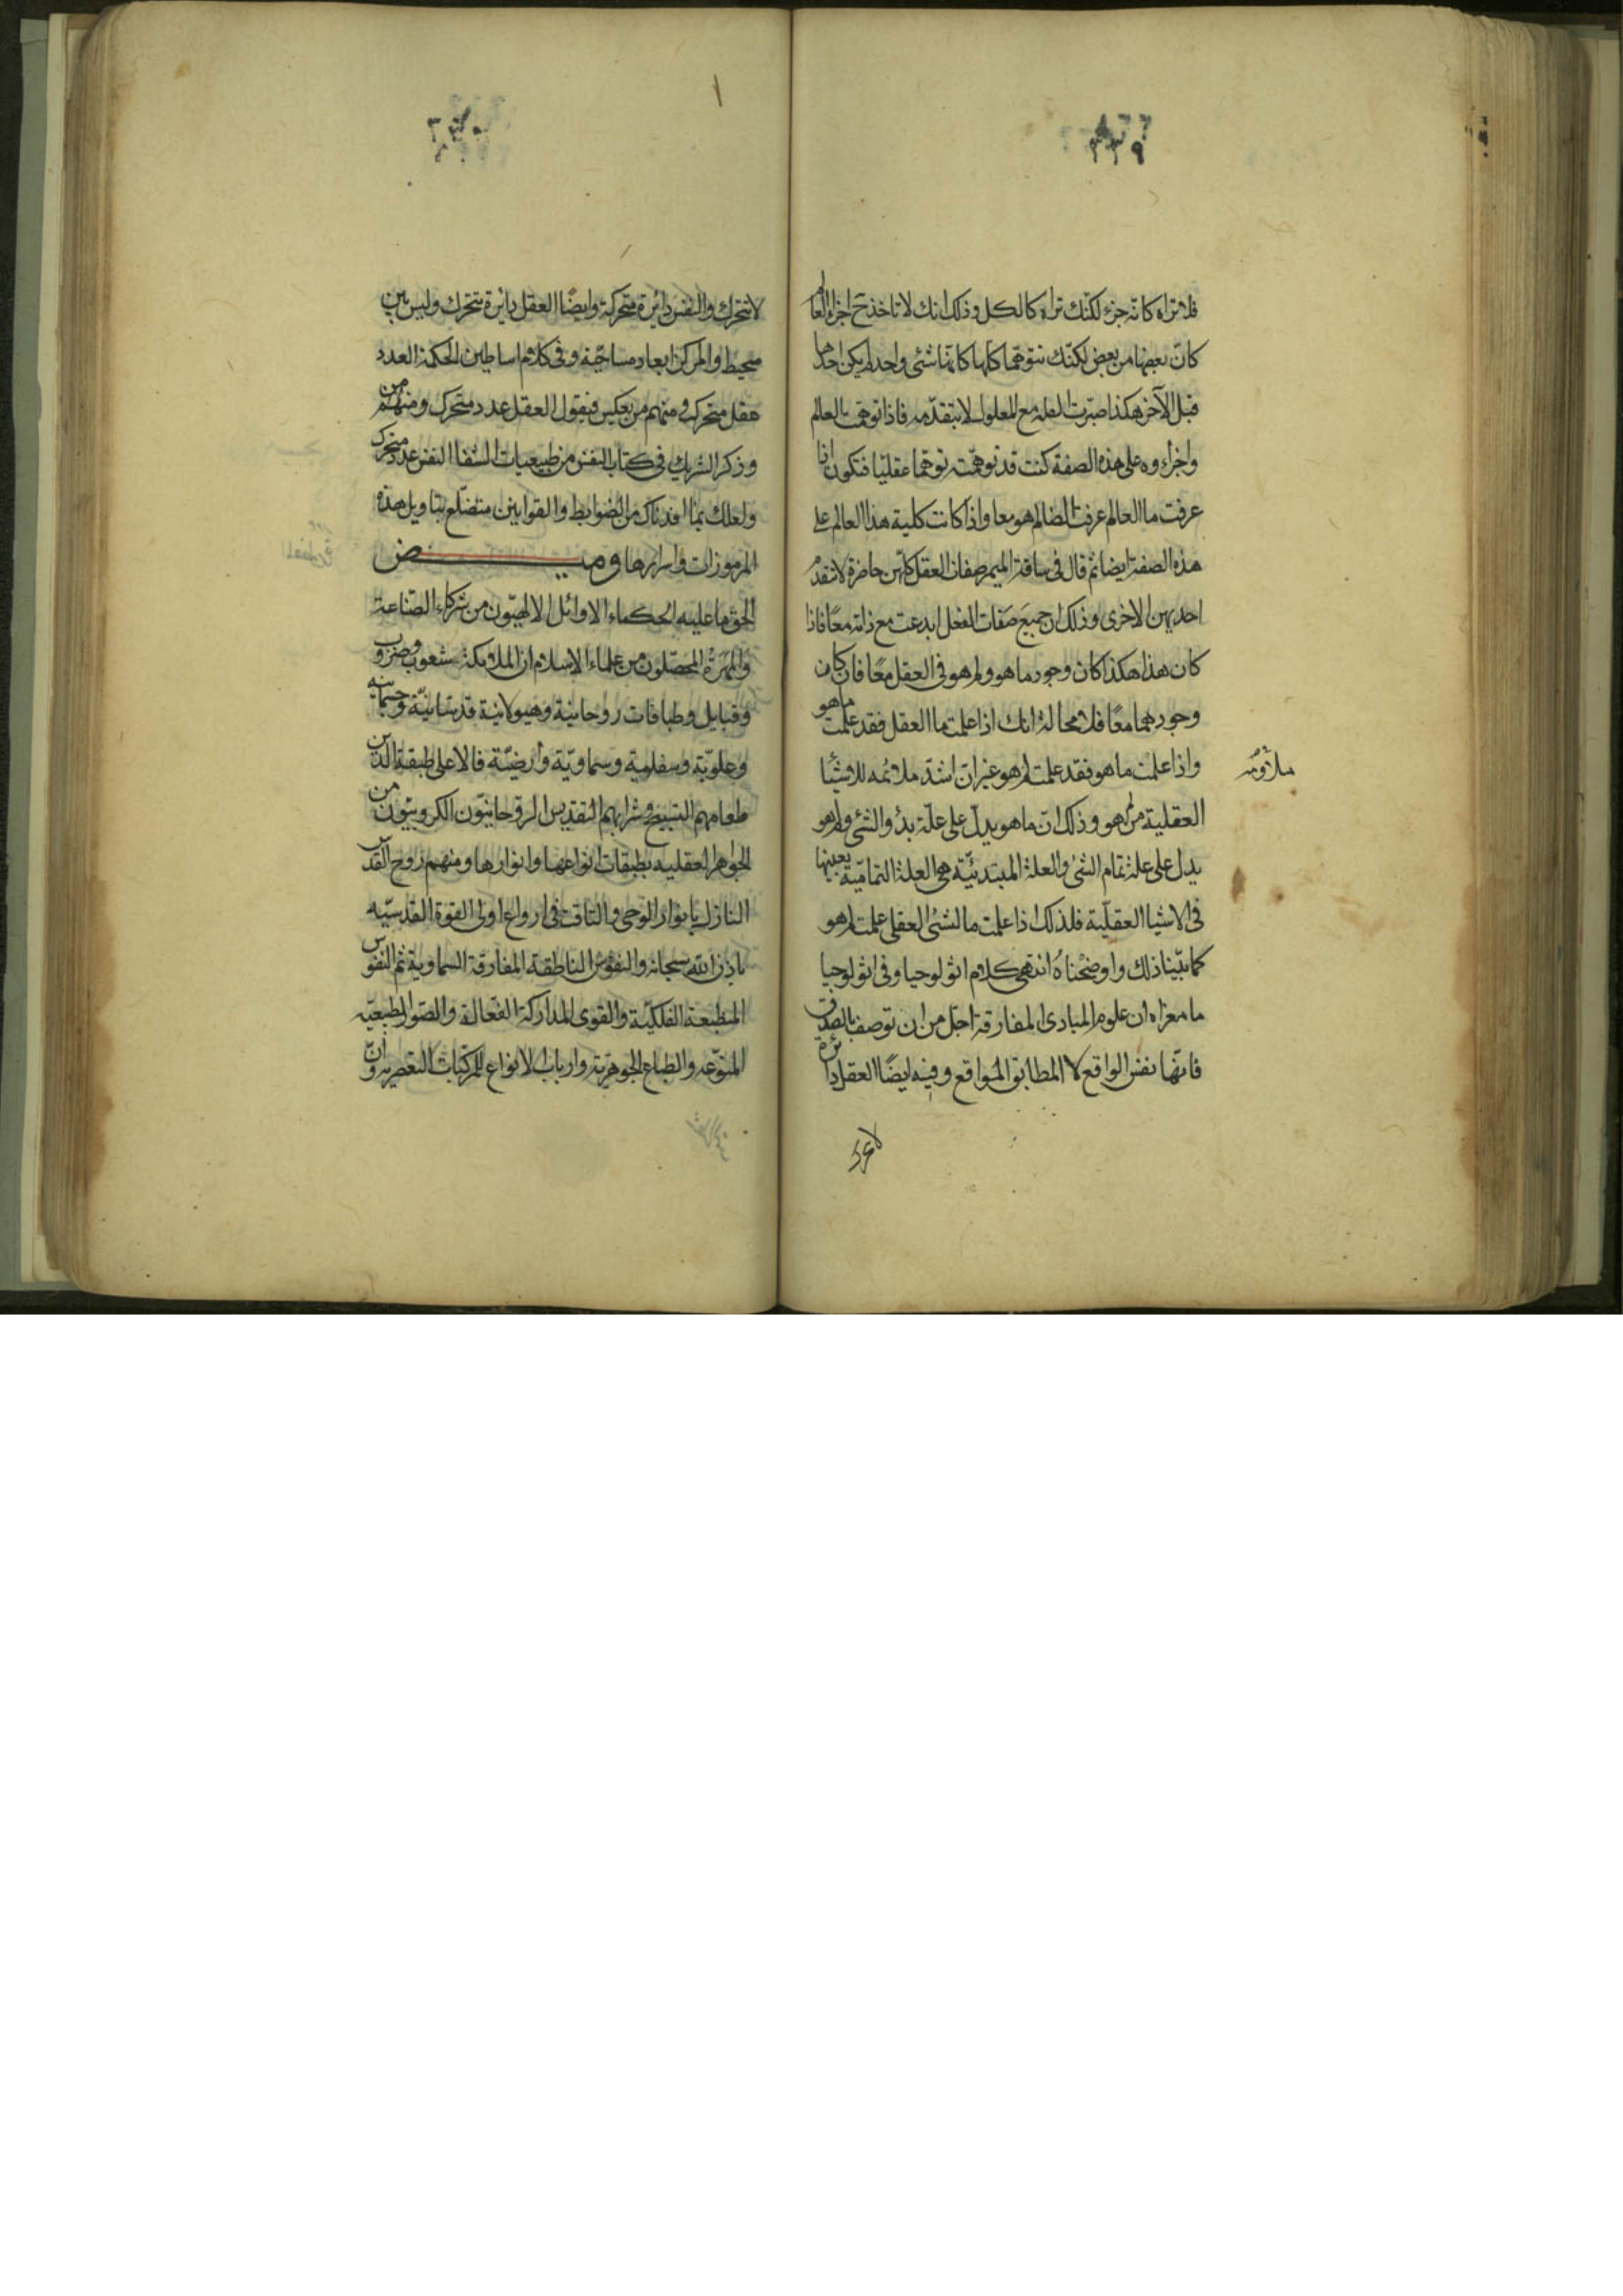 ٢٢٩
فلا تراه كانه جزء لكنّك تراه كالكل وذلك انك لا تاخذ ح اجزاء العالم
كانّ بعضها من بعض لكنّك تتوهّمها كلها كانّها شئ واحد لم يكن احدها
قبل الآخر هكذا صيّرت العلة مع المعلول لا يتقدّمه فاذا توهمت العالم
واجزاءه على هذه الصفة كنت قد توهمّته توهما عقليّا فتكون اذا
عرفت ما العالم عرفت ايضا لم هو معا واذا كانت كلية هذا العالم على
هذه الصفة ايضا ثم قال فى ساقة الميمر صفات العقل كلّهن حاضرة لا تتقدم
احديهن الاخرى وذلك ان جميع صفات العقل ابدعت مع ذاته معًا فاذا
كان هذا هكذا كان وجود ما هو ولم هو فى العقل معًا فان كان
وجودهما معًا فلا محالة انك اذا علمت ما العقل فقد علمت ما هو
واذا علمت ما هو فقد علمت لم هو غير انّ اشدّ ملائمه للاشيا
ملاومه
العقلية من لم هو وذلك انّ ما هو يدلّ على علّة بدؤ الشئ ولم هو
يدل على علة تمام الشئ والعلة المبتدئيّة هى العلة التماميّة بعينها
فى الاشيا العقليّة فلذلك اذا علمت ما الشئ العقلى علمت لم هو
كما بيّنا ذلك واوضحناهُ انتهى كلام اثولوجيا وفى اثولوجيا
ما مغزاه ان علوم المبادى المفارقة اجلّ من ان توصف بالصدق
فانّها نفس الواقع لا المطابق للواقع وفيه ايضًا العقل دائرة
لا تتحرك
٢٣٠
لا تتحرك والنفس دائرة متحركة وايضًا العقل دائرة تتحرك وليس بين
محيط والمركز ابعاد مساحيّة وفى كلام اساطين الحكمة العدد
عقل متحرك ومنهم من يعكس فيقول العقل عدد متحرك ومنهم من
وذكر الشريك فى كتاب النفس من طبيعيات الشفا النفس عدد متحرك
ولعلك بما افدناك من الضوابط والقوانين متضلّع بتاويل هذه
المرموزات واسرارها وميـــض
الحق ما عليه الحكماء الاوائل الالهيّون من شركاء الصّناعة
والمهرةُ المحصّلون من علماء الاسلام ان الملايكة شعوب وضروب
وقبايل وطباقات روحانية وهيولانية قدسانيّة وجسمانيه
وعلويّة وسفلوية وسماويّة وأرضيّة فالاعلى طبقة الذين
طعامهم التسبيح وشرابهم التقديس الروحانيّون الكروبيّون من
الجواهر العقليه بطبقات انواعها وانوارها ومنهم روح القدس
النازل بانوار الوحى والنافث فى ارواع اولى القوة القدسيّه
باذن الله سبحانه والنفوس الناطقة المفارقة السماوية ثم النفوس
المنطبعة الفلكيّة والقوى الدراكة الفعّالة والصّور الطبيعيّه
المنوّعه والطباع الجوهريّة وارباب الانواع للمركبات العنصريه وانّ